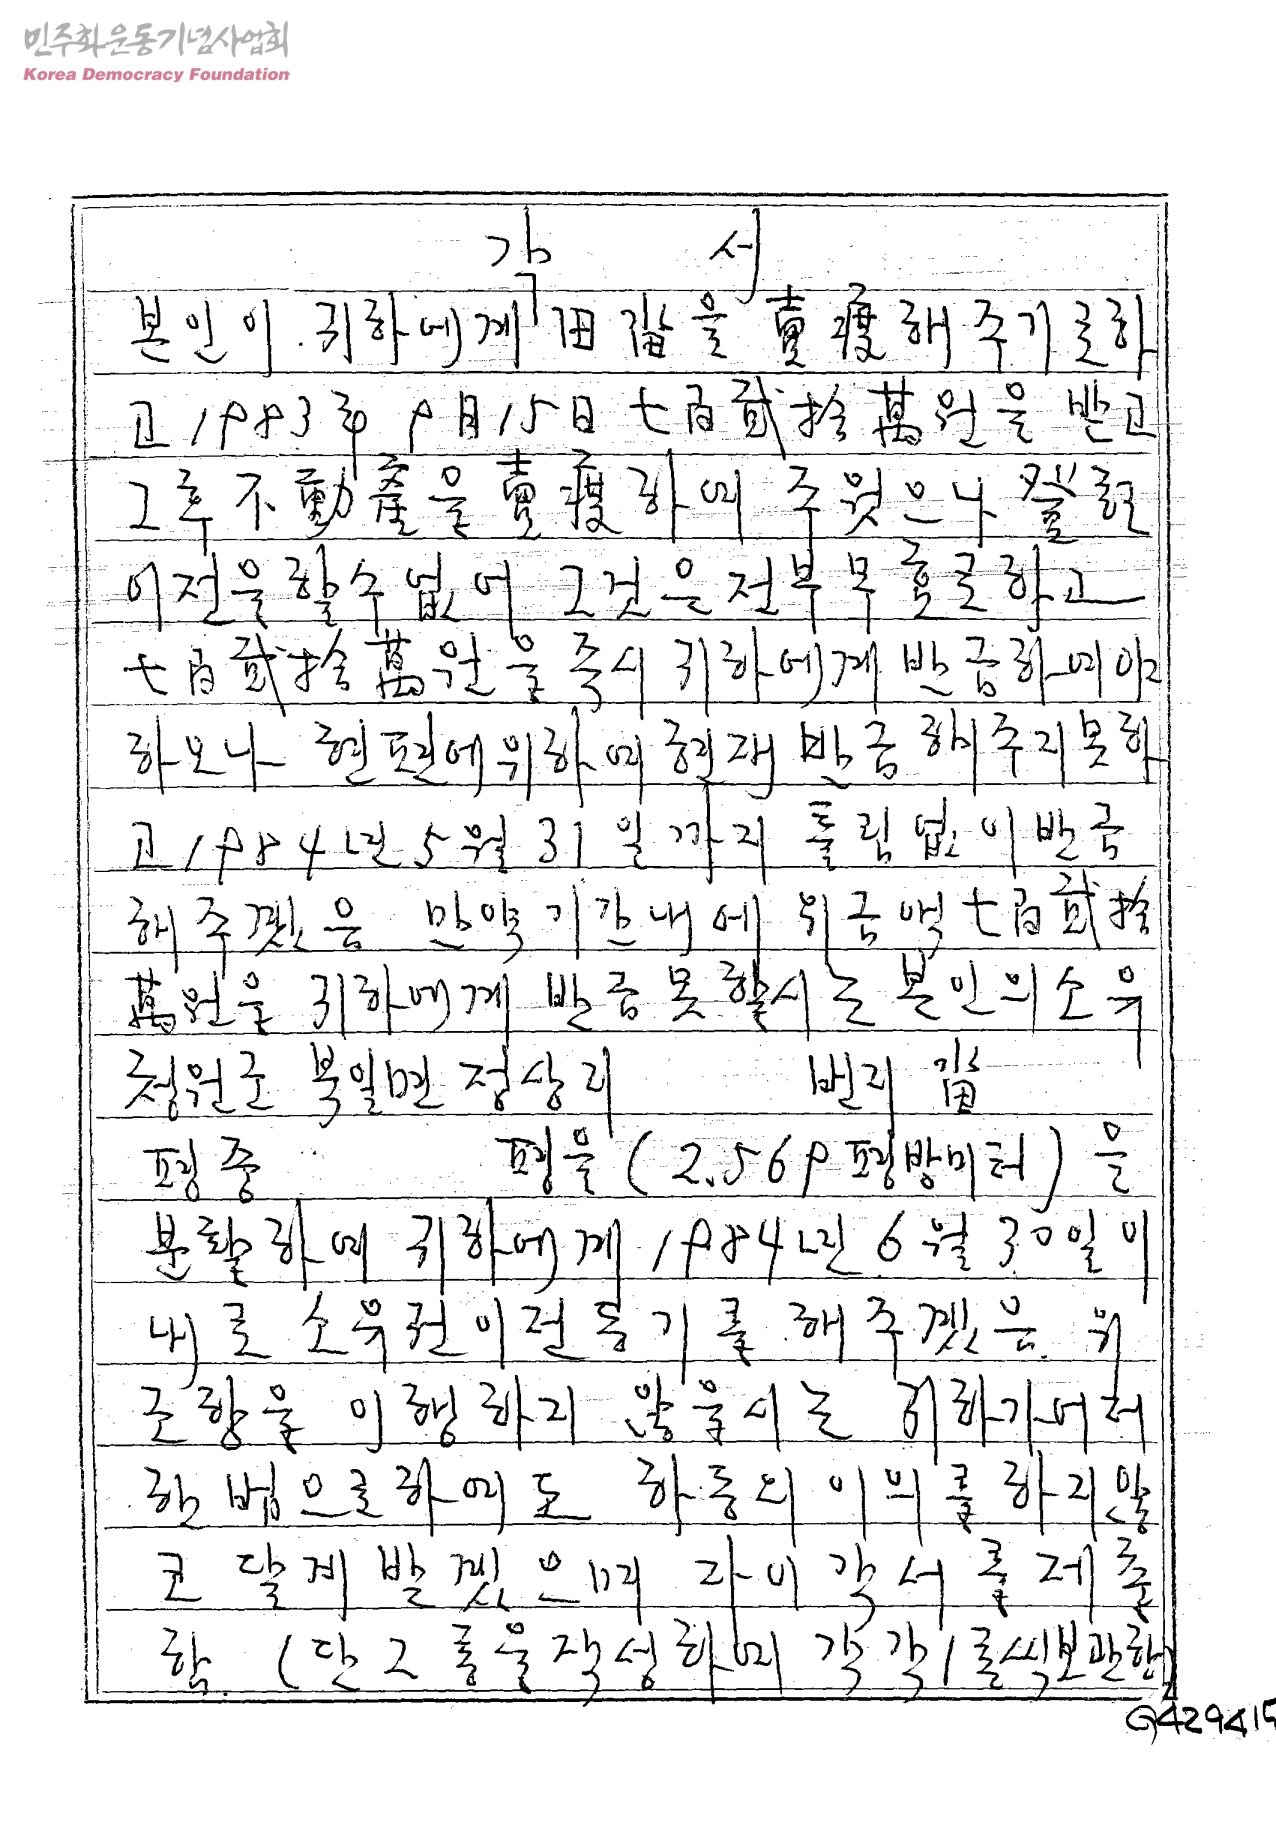 민주화운동기념사업회
Korea Democracy Foundation
각 서
본인이 귀하에게 田畓을 賣渡해 주기로하
고 1983年 9月 15日 七百貳拾萬원을 받고
그후 不動産을 賣渡하여 주웟으나 登현
이전을 할수 없어 그것은 전부 무효로 하고
七百貳拾萬원을 즉시 귀하에게 반급하여야
하오나 현편에 위하여 현재 반급 해주지못하
고 1984년 5월 31일 까지 틀림없이 반급
해주겠음 만약 기간내에 위금액 七百貳拾
萬원을 귀하에게 반급 못할시는 본인의 소유
청원군 북일면 정상리 번지 畓
평중 평을 (2.569평방미터) 을
분활하여 귀하에게 1984년 6월 30일 이
내로 소유권이전등기를 해주겠음. 위
조항을 이행하지 않을시는 귀하가 어떠
한 법으로 하여도 하등의 이의를 하지않
코 달게 받겠으며 자이 각서를 제출
함. (단 2통을 작성하여 각각 1통씩보관함)
G429415